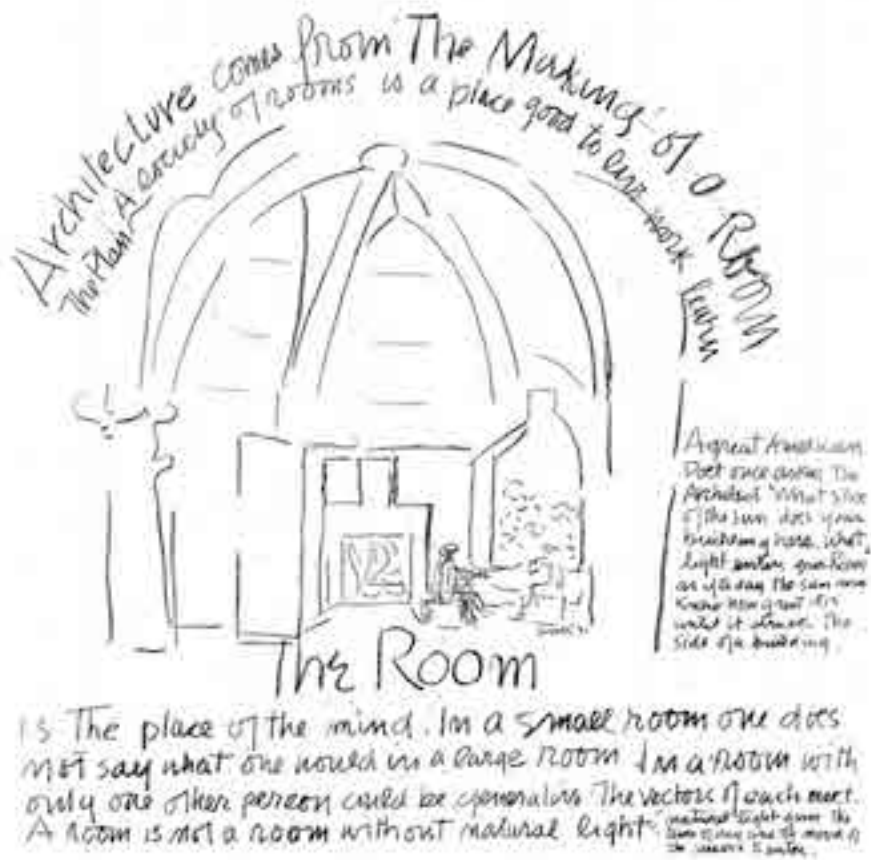 Architecture comes from The Making of a Room
The Plan A society of rooms is a place good to live work learn
A great American
Poet once asked The
Architect 'What slice
of the sun does your
building have. What
light enters your Room
as if to say the sun never
knew how great it is
until it struck The
side of a building.
The Room
is The place of the mind. In a small room one does
not say what one would in a large room In a room with
only one other person could be generative The vectors of each meet.
A room is not a room without natural light
natural light gives the
time of day and the mood of
the seasons to enter.